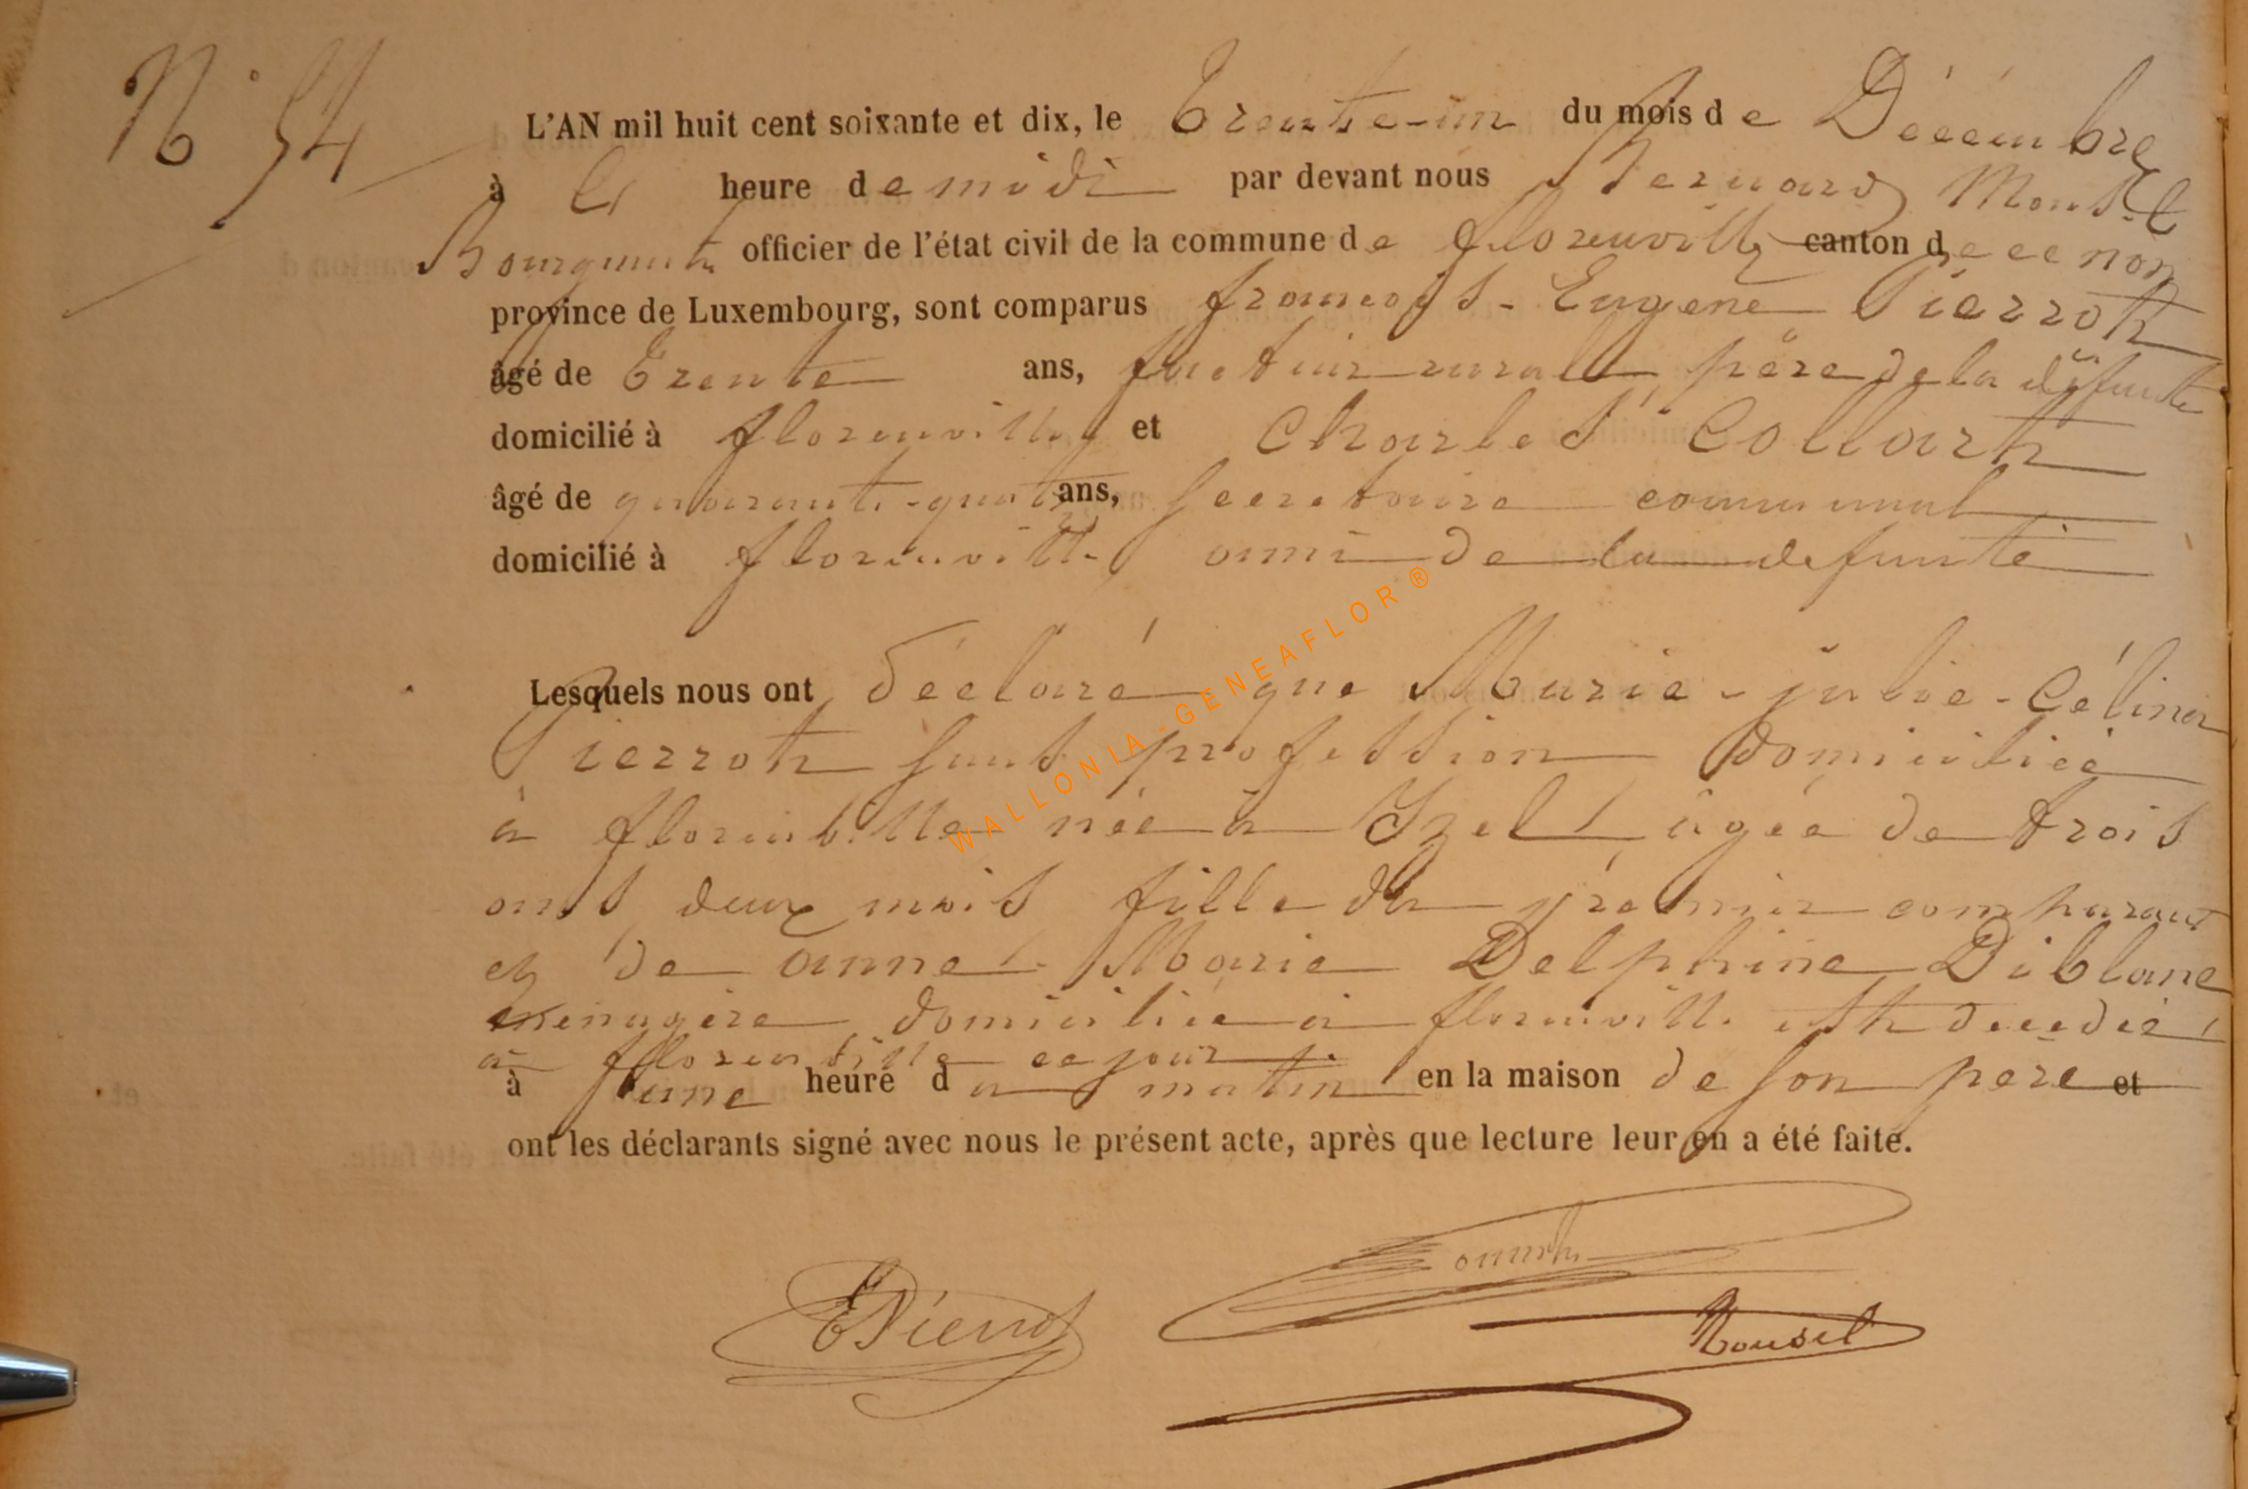 N° 54
L'AN mil huit cent soixante et dix, le Trente-un du mois de Décembre
à heure de midi par devant nous Bernard Mousel
Bourgmestre officier de l'état civil de la commune de florenville canton de ce nom
province de Luxembourg, sont comparus françois-Eugène Pierrot
âgé de Trente ans, facteur rural, père de la défunte
domicilié à florenville et Charles Collart
âgé de quarante-quatre ans, secretaire communal
domicilié à florenville, ami de la defunte
WALLONIA-GENEAFLOR®
Lesquels nous ont déclaré que Marie-julie-Célina
Pierrot sans profession domiciliée
à florenville née à Izel, âgée de trois
ans deux mois fille du premier comparant
et de anne Marie Delphine Diblanc
ménagère domiciliée à florenville est decedée
à florenville ce jour
à une heure du matin en la maison de son père et
ont les déclarants signé avec nous le présent acte, après que lecture leur en a été faite.
EPierrot
Mousel